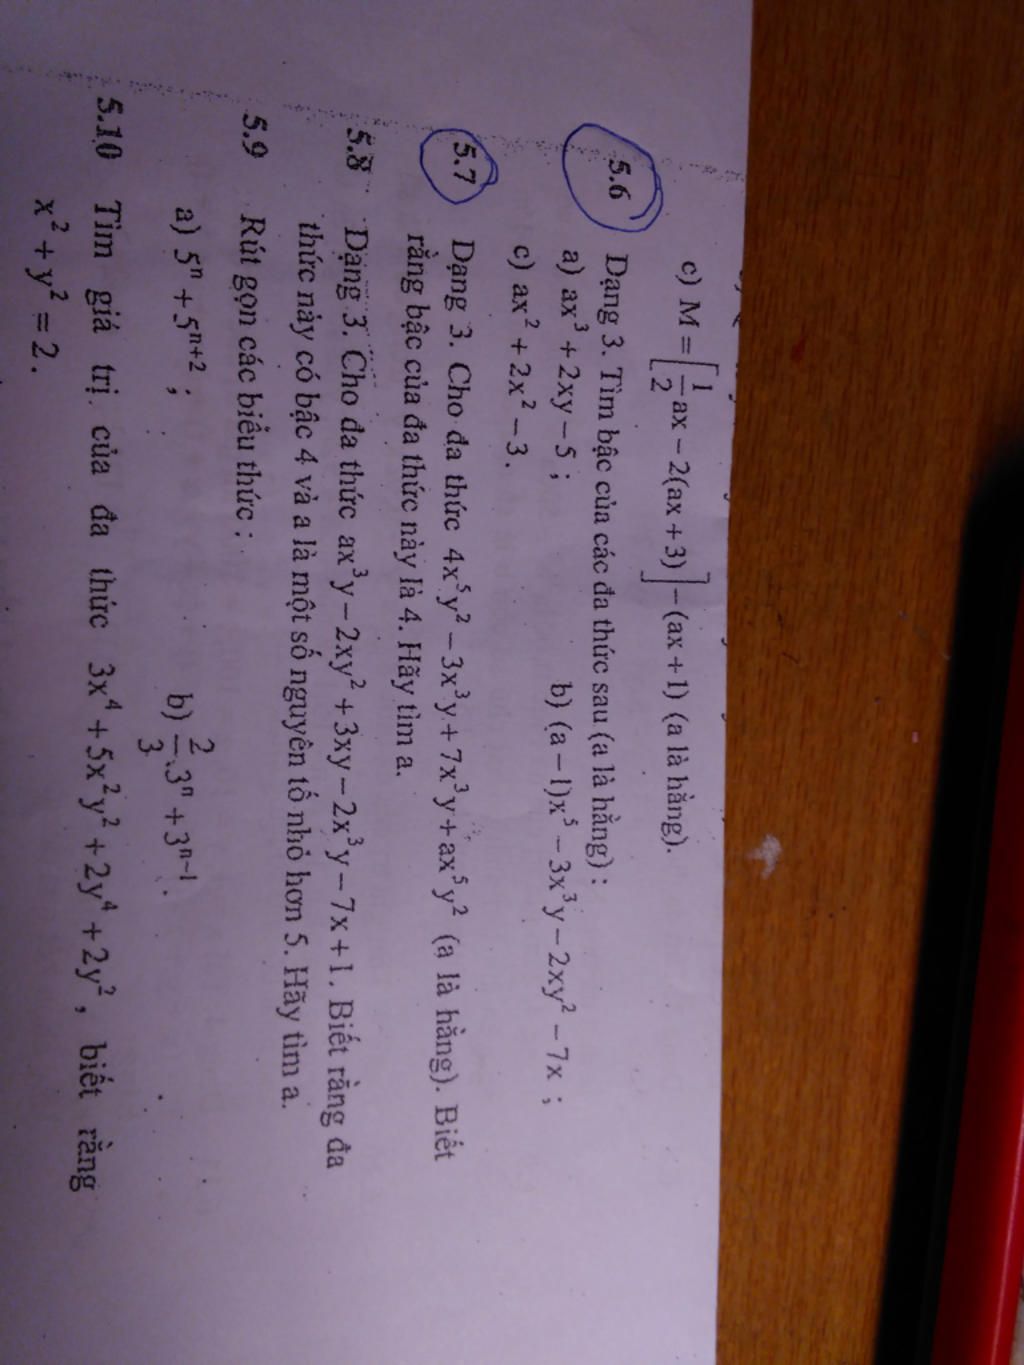 c) M = [1/2 ax − 2(ax + 3)] − (ax + 1) (a là hằng).
5.6 Dạng 3. Tìm bậc của các đa thức sau (a là hằng) :
a) ax³ + 2xy − 5 ; b) (a − 1)x⁵ − 3x³y − 2xy² − 7x ;
c) ax² + 2x² − 3.
5.7 Dạng 3. Cho đa thức 4x⁵y² − 3x³y + 7x³y + ax⁵y² (a là hằng). Biết
rằng bậc của đa thức này là 4. Hãy tìm a.
5.8 Dạng 3. Cho đa thức ax³y − 2xy² + 3xy − 2x³y − 7x + 1. Biết rằng đa
thức này có bậc 4 và a là một số nguyên tố nhỏ hơn 5. Hãy tìm a.
5.9 Rút gọn các biểu thức :
a) 5ⁿ + 5ⁿ⁺² ; b) 2/3 .3ⁿ + 3ⁿ⁻¹.
5.10 Tìm giá trị của đa thức 3x⁴ + 5x²y² + 2y⁴ + 2y², biết rằng
x² + y² = 2.